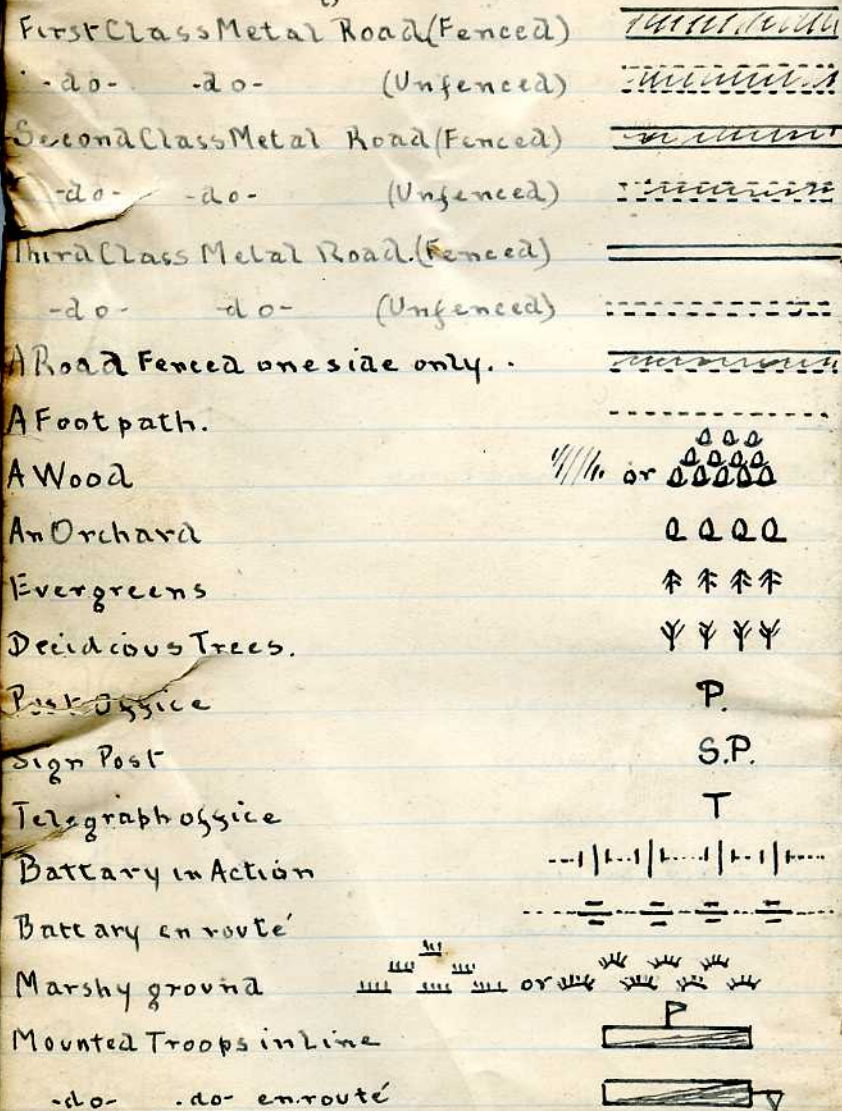 First Class Metal Road (Fenced)
-do- -do- (Unfenced)
Second Class Metal Road (Fenced)
-do- -do- (Unfenced)
Third Class Metal Road. (Fenced)
-do- -do- (Unfenced)
A Road Fenced one side only. .
A Footpath.
A Wood or
An Orchard
Evergreens
Decidcious Trees.
Post Office P.
Sign Post S.P.
Telegraph office T
Battary in Action
Battary en routé
Marshy ground or
Mounted Troops in Line
-do- .do- en routé